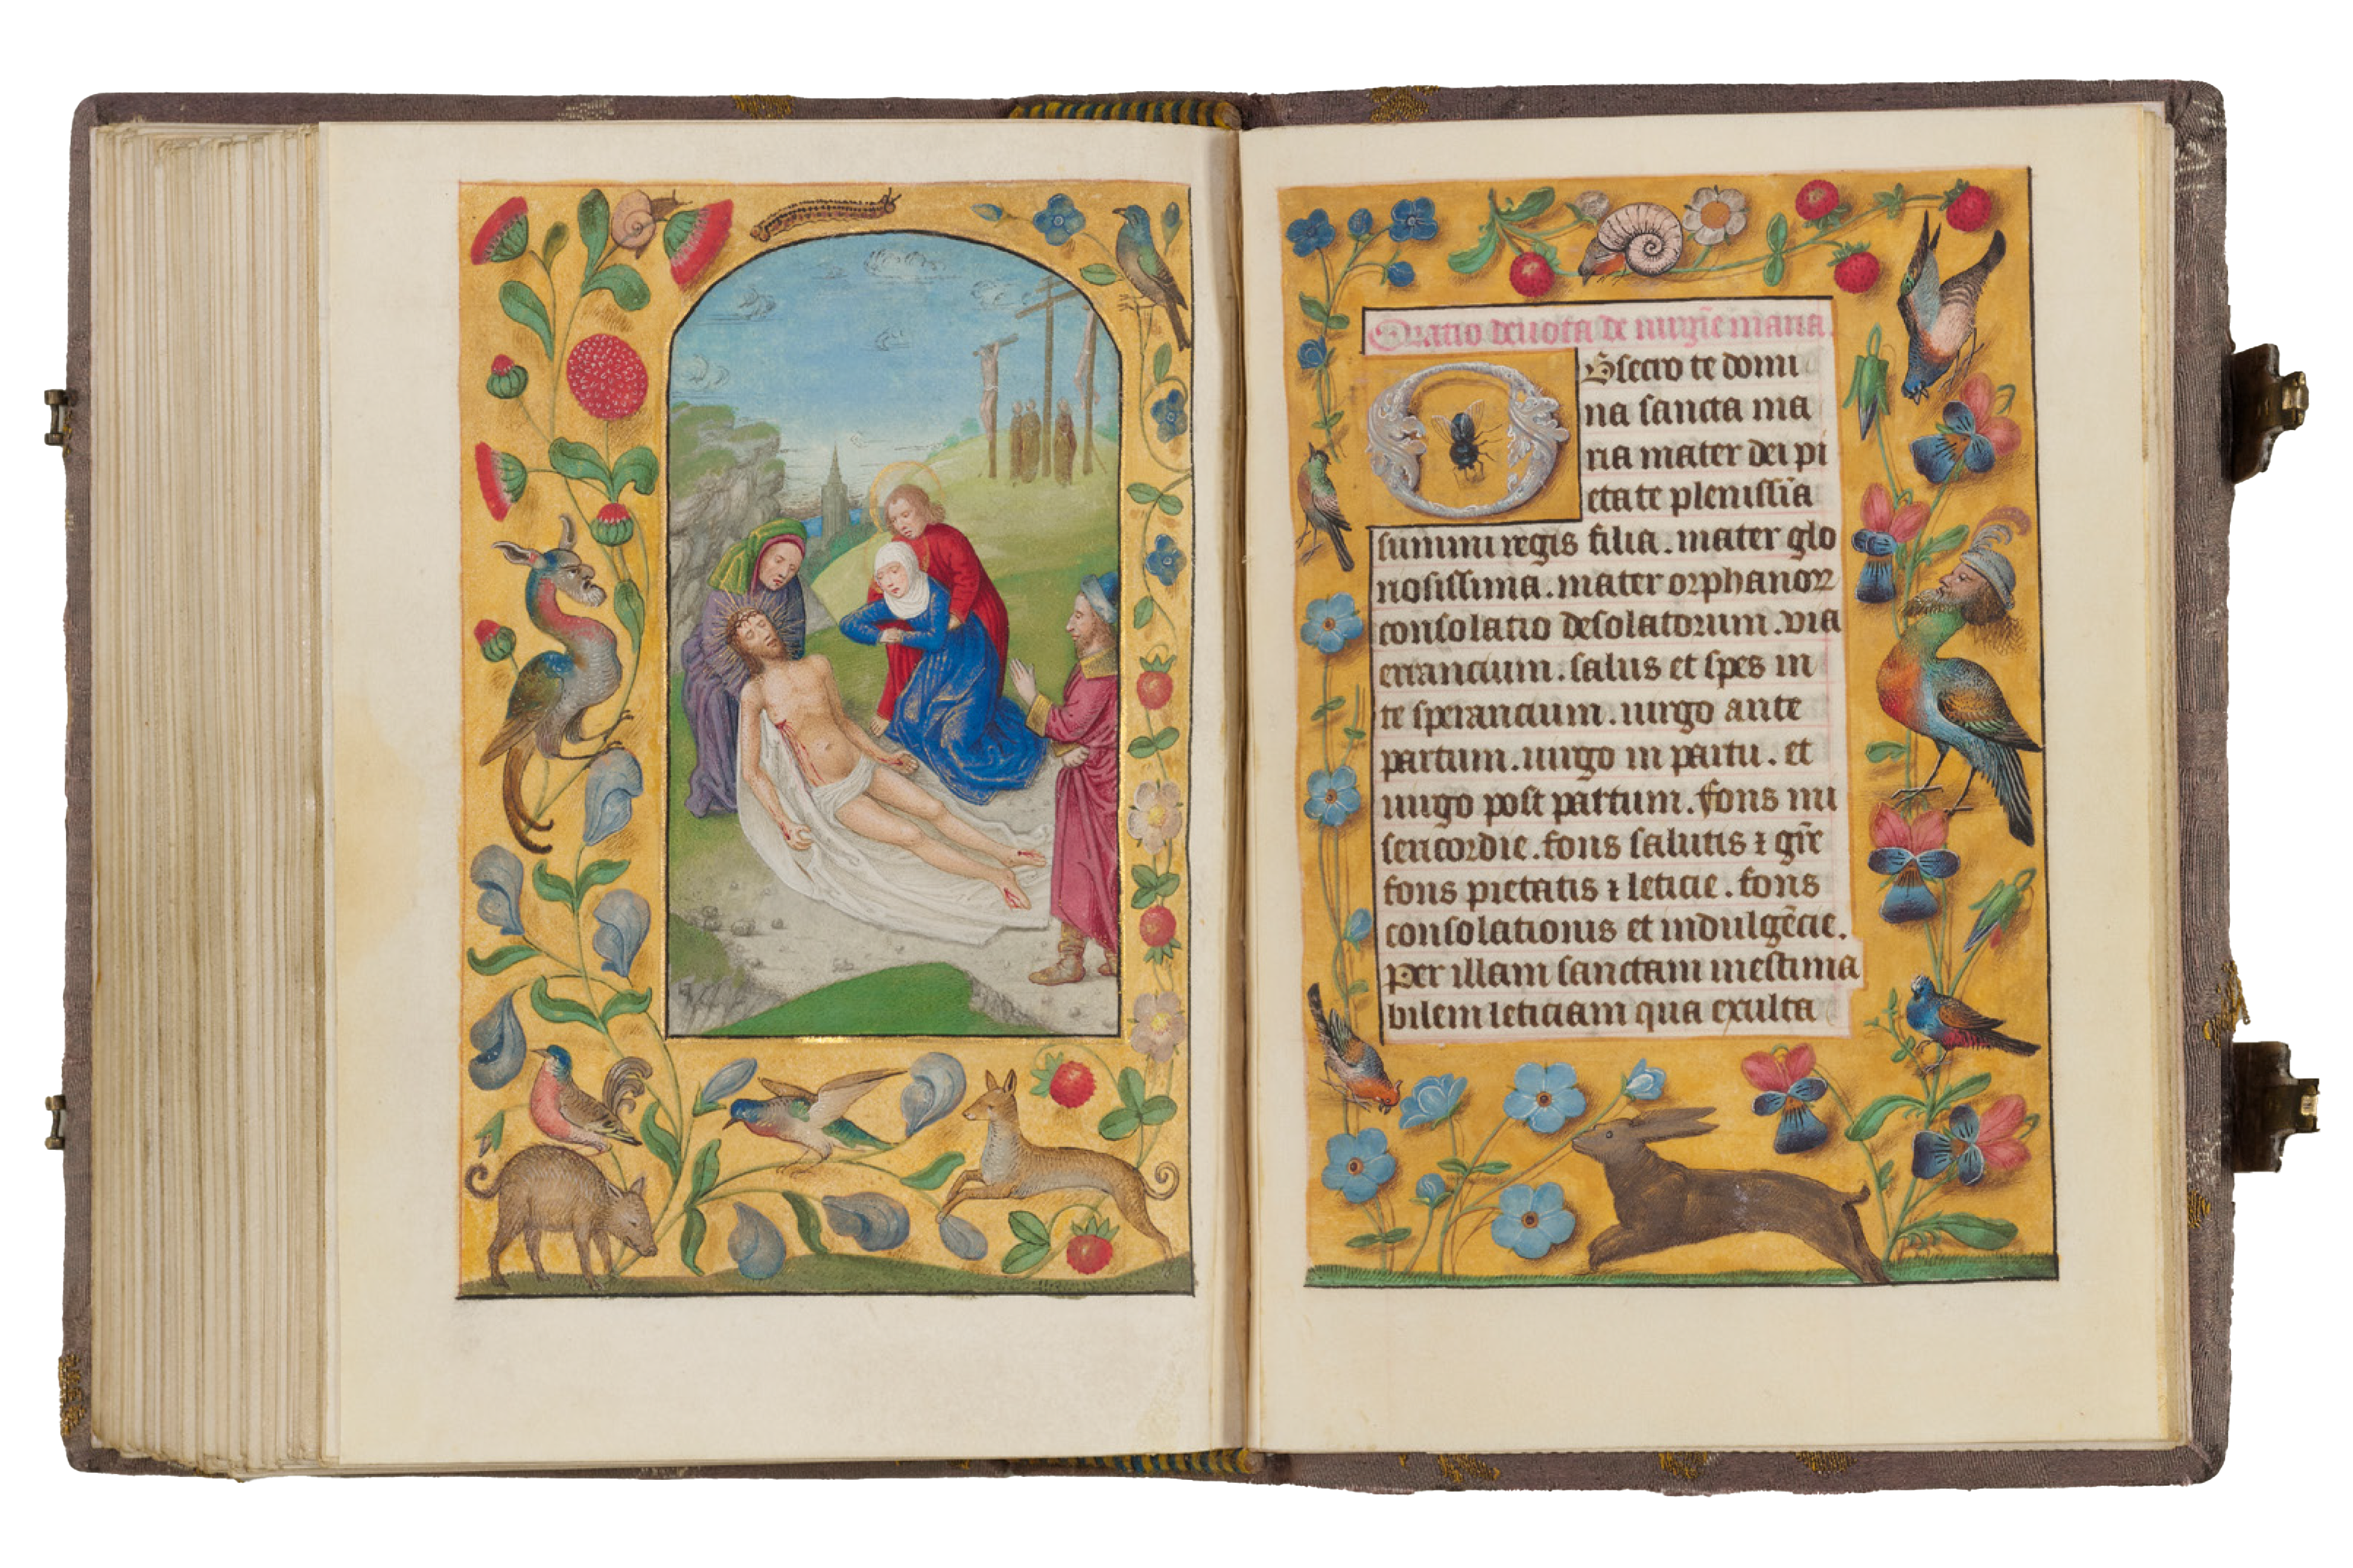 Oratio deuota de uirgīe maria.
Obsecro te domi
na sancta ma
ria mater dei pi
etate plenissīa
summi regis filia. mater glo
riosissima. mater orphanoꝝ
consolatio desolatorum. via
errancium. salus et spes in
te sperancium. uirgo ante
partum. uirgo in partu. et
uirgo post partum. fons mi
sericordie. fons salutis ⁊ gr̄e
fons pietatis ⁊ leticie. fons
consolationis et indulgēcie.
Per illam sanctam inestima
bilem leticiam qua exulta